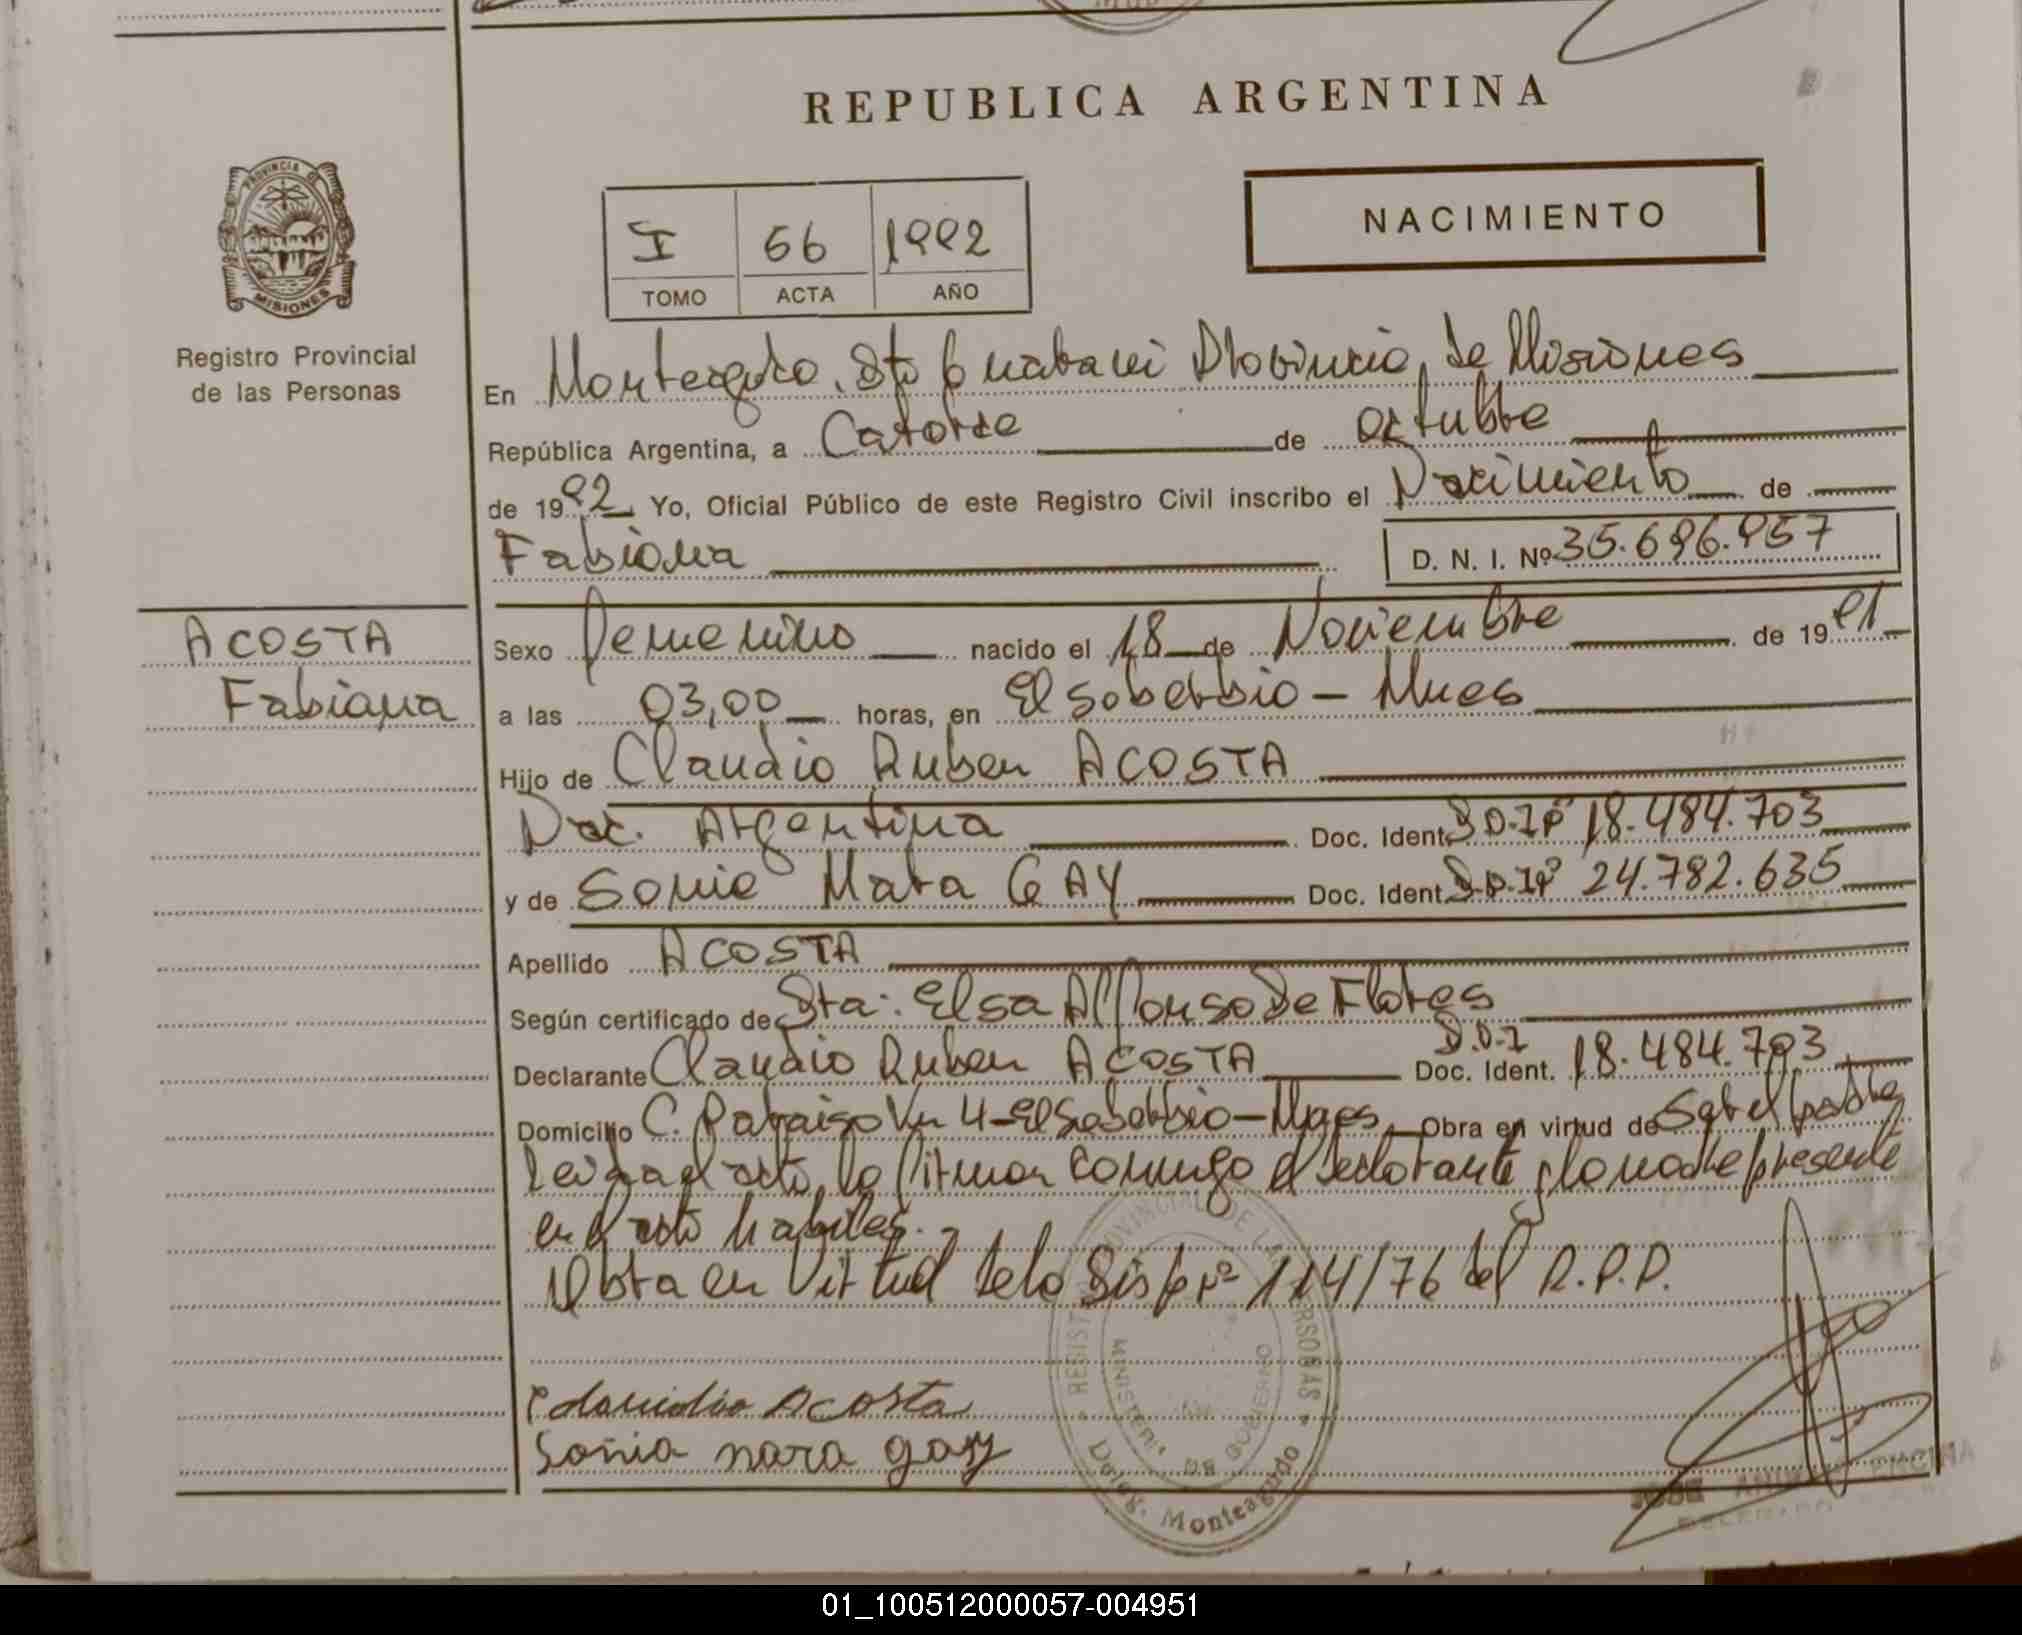 REPUBLICA ARGENTINA
PROVINCIA DE
MISIONES
Registro Provincial
de las Personas
I 66 1992
TOMO ACTA AÑO
NACIMIENTO
En Monteagudo, Dto Guarani Provincia de Misiones
República Argentina, a Catorce de octubre
de 1992 Yo, Oficial Público de este Registro Civil inscribo el Nacimiento de
Fabiana D. N. I. Nº 35.696.957
ACOSTA
Fabiana
Sexo Femenino nacido el 18 de Noviembre de 1991
a las 03,00 horas, en El Soberbio - Mnes
Hijo de Claudio Ruben ACOSTA
Nac. Argentina Doc. Ident. D.N.I Nº 18.484.703
y de Sonia Mara GAY Doc. Ident. D.N.I Nº 24.782.635
Apellido ACOSTA
Según certificado de Sta: Elsa Alfonso De Flores
Declarante Claudio Ruben ACOSTA Doc. Ident. D.N.I 18.484.703
Domicilio C. Paraiso Km 4 - El Soberbio - Mnes Obra en virtud de Ser el padre
Leida el acta, la firman conmigo el declarante y la madre presente
en el acto habiles.
Obra en Virtud de la Disp Nº 114/76 del R.P.P.
Claudio Acosta
Sonia mara gay
REGISTRO PROVINCIAL DE LAS PERSONAS
MINISTERIO DE GOBIERNO
Deleg. Monteagudo
JOSE ENCINA
01_100512000057-004951